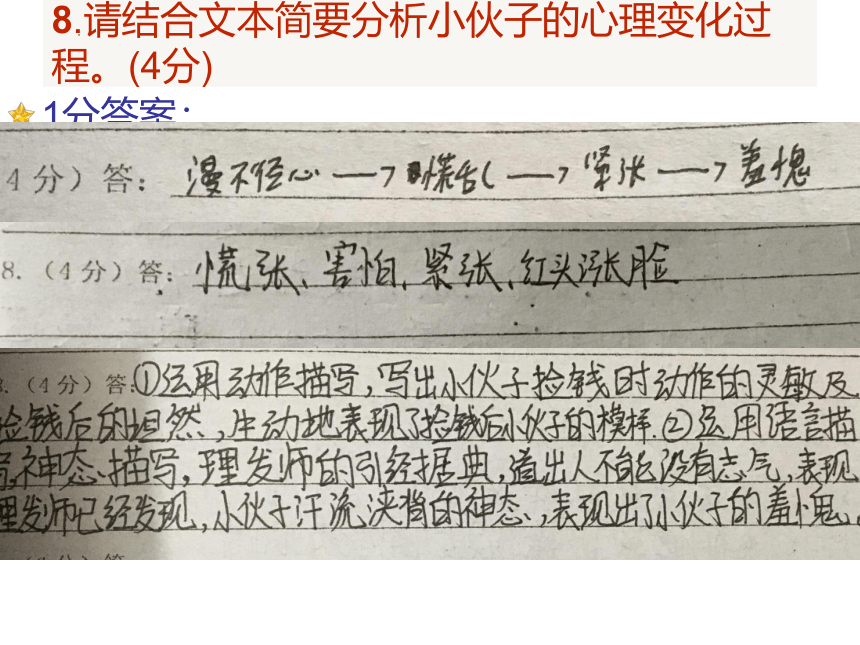 8.请结合文本简要分析小伙子的心理变化过
程。(4分)
1分答案：
4 分）答：漫不径心 —→ 慌乱 —→ 紧张 —→ 羞愧
8.（4 分）答：慌张、害怕、紧张、红头涨脸
8.（4分）答：①运用动作描写，写出小伙子捡钱时动作的灵敏及
捡钱后的坦然，生动地表现了捡钱后小伙子的模样.②运用语言描
写,神态描写，理发师的引经据典，道出人不能没有志气，表现
理发师已经发现，小伙子汗流浃背的神态，表现出了小伙子的羞愧。